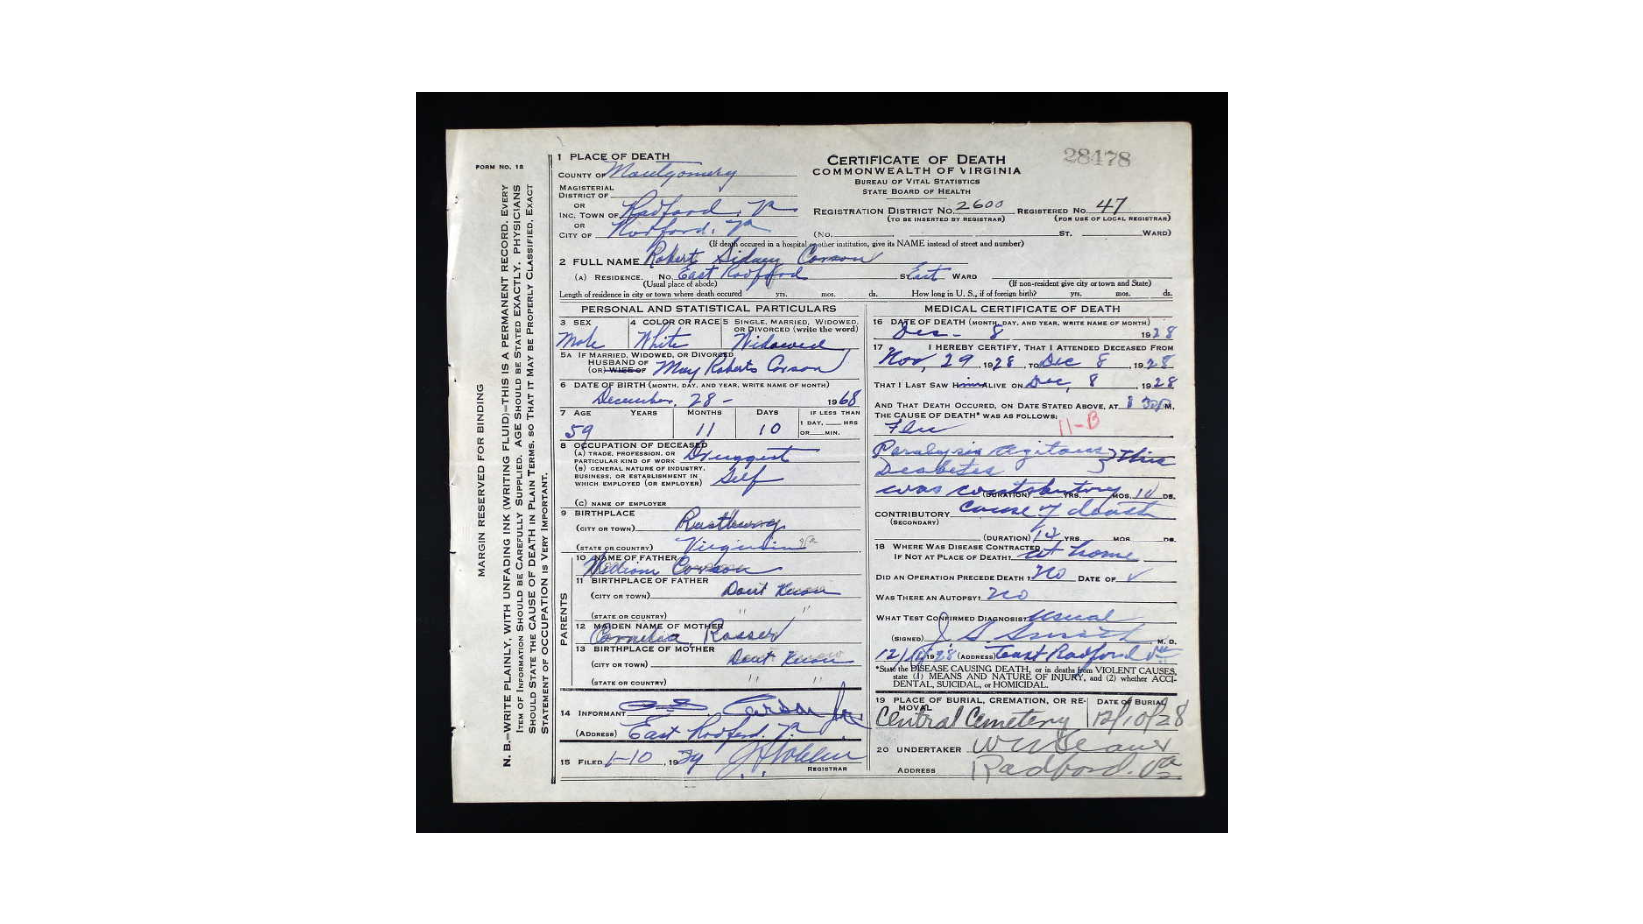 FORM NO. 18
MARGIN RESERVED FOR BINDING
N. B.—WRITE PLAINLY, WITH UNFADING INK (WRITING FLUID)—THIS IS A PERMANENT RECORD. EVERY
ITEM OF INFORMATION SHOULD BE CAREFULLY SUPPLIED. AGE SHOULD BE STATED EXACTLY. PHYSICIANS
SHOULD STATE THE CAUSE OF DEATH IN PLAIN TERMS, SO THAT IT MAY BE PROPERLY CLASSIFIED. EXACT
STATEMENT OF OCCUPATION IS VERY IMPORTANT.
1 PLACE OF DEATH
COUNTY OF Montgomery
MAGISTERIAL
DISTRICT OF
OR
INC. TOWN OF Radford, Va
OR
CITY OF Radford, Va
CERTIFICATE OF DEATH
COMMONWEALTH OF VIRGINIA
BUREAU OF VITAL STATISTICS
STATE BOARD OF HEALTH
28478
REGISTRATION DISTRICT NO. 2600 REGISTERED NO. 47
(TO BE INSERTED BY REGISTRAR) (FOR USE OF LOCAL REGISTRAR)
(NO. ST. WARD)
(If death occured in a hospital or other institution, give its NAME instead of street and number)
2 FULL NAME Robert Sidney Corson
(A) RESIDENCE. NO. East Radford S East WARD
(Usual place of abode) (If non-resident give city or town and State)
Length of residence in city or town where death occured yrs. mos. ds. How long in U. S., if of foreign birth? yrs. mos. ds.
PERSONAL AND STATISTICAL PARTICULARS
3 SEX 4 COLOR OR RACE 5 SINGLE, MARRIED, WIDOWED,
OR DIVORCED (write the word)
Male White Widowed
5A IF MARRIED, WIDOWED, OR DIVORCED
HUSBAND OF
(OR) WIFE OF May Roberts Corson
6 DATE OF BIRTH (MONTH, DAY, AND YEAR, WRITE NAME OF MONTH)
December. 28 - 1968
7 AGE YEARS MONTHS DAYS IF LESS THAN
1 DAY, HRS
OR MIN.
59 11 10
8 OCCUPATION OF DECEASED
(A) TRADE, PROFESSION, OR
PARTICULAR KIND OF WORK Druggist
(B) GENERAL NATURE OF INDUSTRY,
BUSINESS, OR ESTABLISHMENT IN
WHICH EMPLOYED (OR EMPLOYER) Self
(C) NAME OF EMPLOYER
9 BIRTHPLACE
(CITY OR TOWN) Rustburg
(STATE OR COUNTRY) Virginia Va
10 NAME OF FATHER
William Corson
11 BIRTHPLACE OF FATHER
(CITY OR TOWN) Dont Know
(STATE OR COUNTRY) " "
PARENTS
12 MAIDEN NAME OF MOTHER
Cornelia Rosser
13 BIRTHPLACE OF MOTHER
(CITY OR TOWN) Dont Know
(STATE OR COUNTRY) " "
14 INFORMANT Carson Jr.
(ADDRESS) East Radford, Va
15 FILED 1-10, 1929
REGISTRAR
MEDICAL CERTIFICATE OF DEATH
16 DATE OF DEATH (MONTH, DAY, AND YEAR, WRITE NAME OF MONTH)
Dec - 8 1928
17 I HEREBY CERTIFY, THAT I ATTENDED DECEASED FROM
Nov, 29 1928, TO Dec 8, 1928
THAT I LAST SAW HIM ALIVE ON Dec, 8, 1928
AND THAT DEATH OCCURED, ON DATE STATED ABOVE, AT 8 30P M.
THE CAUSE OF DEATH* WAS AS FOLLOWS:
Flu 11-B
Paralysis agitans } This
Diabetes
was contributory
(DURATION) YRS. MOS. 10 DS.
CONTRIBUTORY cause of death
(SECONDARY)
(DURATION) 12 YRS. MOS DS.
18 WHERE WAS DISEASE CONTRACTED
IF NOT AT PLACE OF DEATH? at home
DID AN OPERATION PRECEDE DEATH? No DATE OF ✓
WAS THERE AN AUTOPSY? No
WHAT TEST CONFIRMED DIAGNOSIS? Usual
(SIGNED) J S Smith M. D.
12/10 1928 (ADDRESS) East Radford Va
*State the DISEASE CAUSING DEATH, or in deaths from VIOLENT CAUSES,
state (1) MEANS AND NATURE OF INJURY, and (2) whether ACCI-
DENTAL, SUICIDAL, or HOMICIDAL.
19 PLACE OF BURIAL, CREMATION, OR RE-
MOVAL DATE OF BURIAL
Central Cemetery 12/10/28
20 UNDERTAKER
ADDRESS Radford. Va